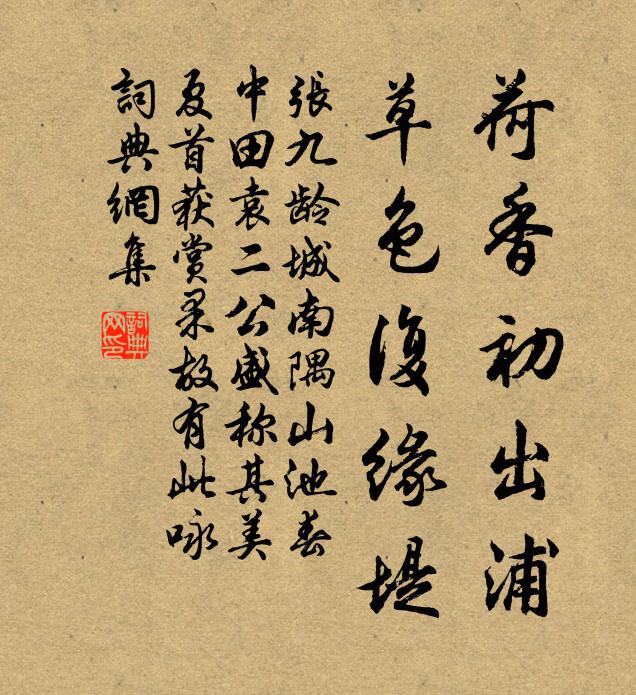 荷香初出浦
草色復緣堤
張九齡城南隅山池春
中田袁二公盛称其美
夏首获賞果故有此咏
詞典網集
詞典网印